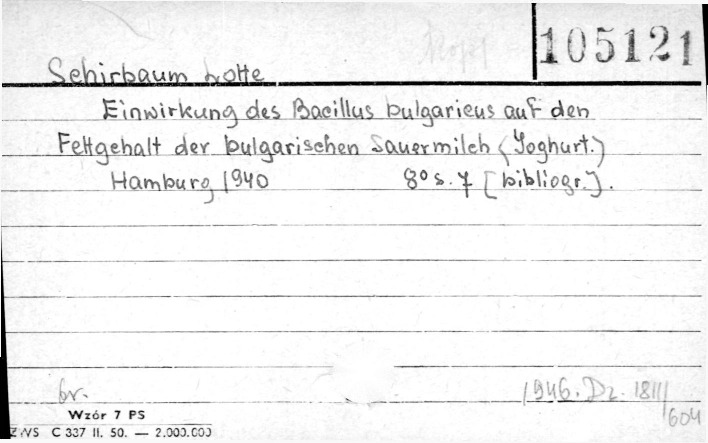 105121
Schirbaum Lotte
Einwirkung des Bacillus bulgaricus auf den
Fettgehalt der bulgarischen Sauermilch (Yoghurt.)
Hamburg 1940 8° s. 7 [bibliogr.].
br.
1946. Dz. 18111/604
Wzór 7 PS
ZWS C 337 II. 50. — 2.000.000